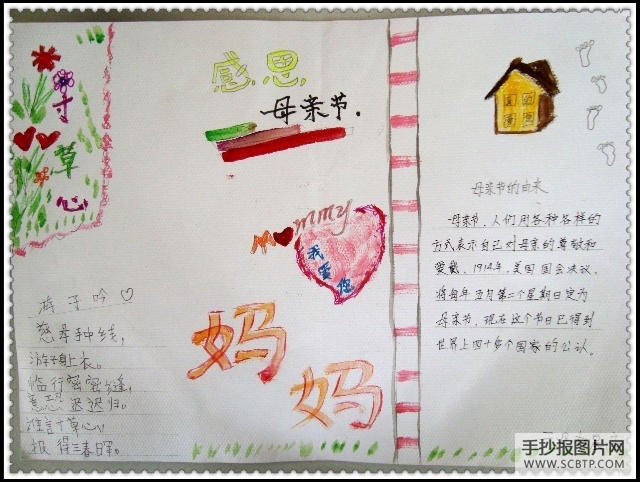 寸
草
心
感恩
母亲节.
mommy
我爱您
妈
妈
游子吟
慈母手中线,
游子身上衣。
临行密密缝,
意恐迟迟归。
谁言寸草心,
报得三春晖。
母亲节的由来
母亲节,人们用各种各样的
方式表示自己对母亲的尊敬和
爱戴。1914年,美国国会决议,
将每年五月第二个星期日定为
母亲节,现在这个节日已得到
世界上四十多个国家的公认。
手抄报图片网
WWW.SCBTP.COM